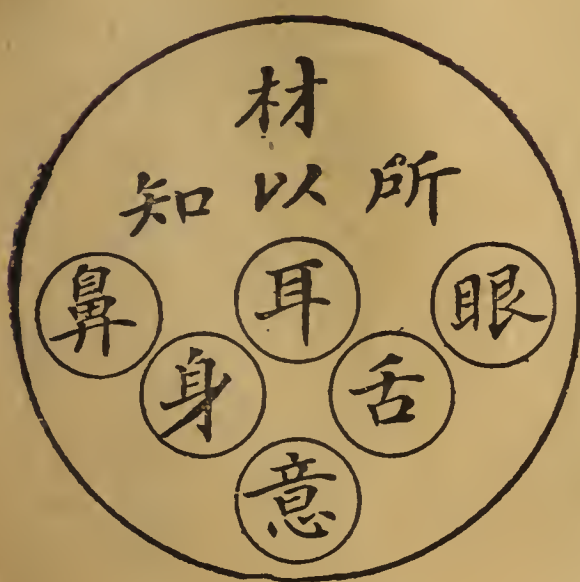 材
所以知
眼耳鼻
舌身
意